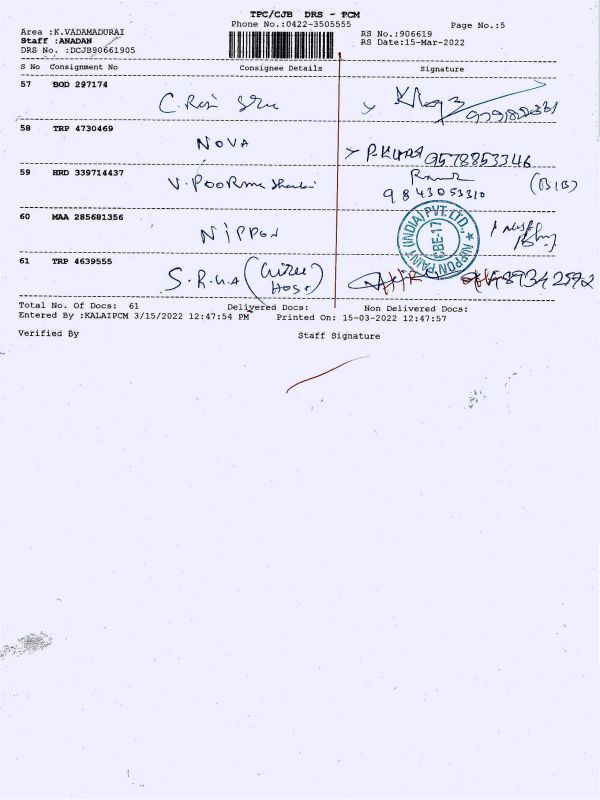 TPC/CJB DRS - PCM
Phone No.:0422-3505555
Page No.:5
Area :K.VADAMADURAI
RS No.:906619
Staff :ANADAN
RS Date:15-Mar-2022
DRS No. :DCJB90661905
S No Consignment No Consignee Details Signature
57 BOD 297174
C.
58 TRP 4730469
NOVA
9578853346
59 HRD 339714437
V. POORNA
9843053310
(BIB)
60 MAA 285681356
NIPPON
NIPPON PAINT (INDIA) PVT. LTD.,
CBE-17
61 TRP 4639555
S.R.
Total No. Of Docs: 61 Delivered Docs: Non Delivered Docs:
Entered By :KALAIPCM 3/15/2022 12:47:54 PM Printed On: 15-03-2022 12:47:57
Verified By Staff Signature